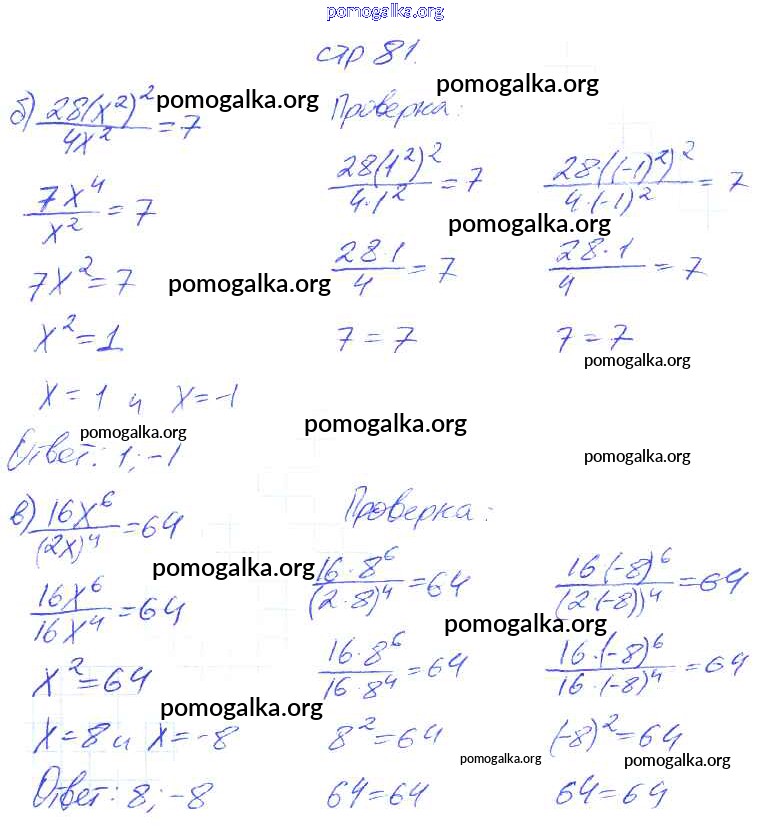 pomogalka.org
стр 81.
pomogalka.org
б) 28(x²)²/4x² = 7
pomogalka.org
Проверка:
28(1²)²/4·1² = 7
28·((-1)²)²/4·(-1)² = 7
7x⁴/x² = 7
pomogalka.org
28·1/4 = 7
28·1/4 = 7
7x² = 7
pomogalka.org
x² = 1
7 = 7
7 = 7
pomogalka.org
x = 1 и x = -1
pomogalka.org
pomogalka.org
Ответ: 1; -1
pomogalka.org
в) 16x⁶/(2x)⁴ = 64
Проверка:
pomogalka.org
16·8⁶/(2·8)⁴ = 64
16(-8)⁶/(2·(-8))⁴ = 64
16x⁶/16x⁴ = 64
pomogalka.org
16·8⁶/16·8⁴ = 64
16·(-8)⁶/16·(-8)⁴ = 64
x² = 64
pomogalka.org
x = 8 и x = -8
8² = 64
(-8)² = 64
pomogalka.org
pomogalka.org
Ответ: 8; -8
64 = 64
64 = 64